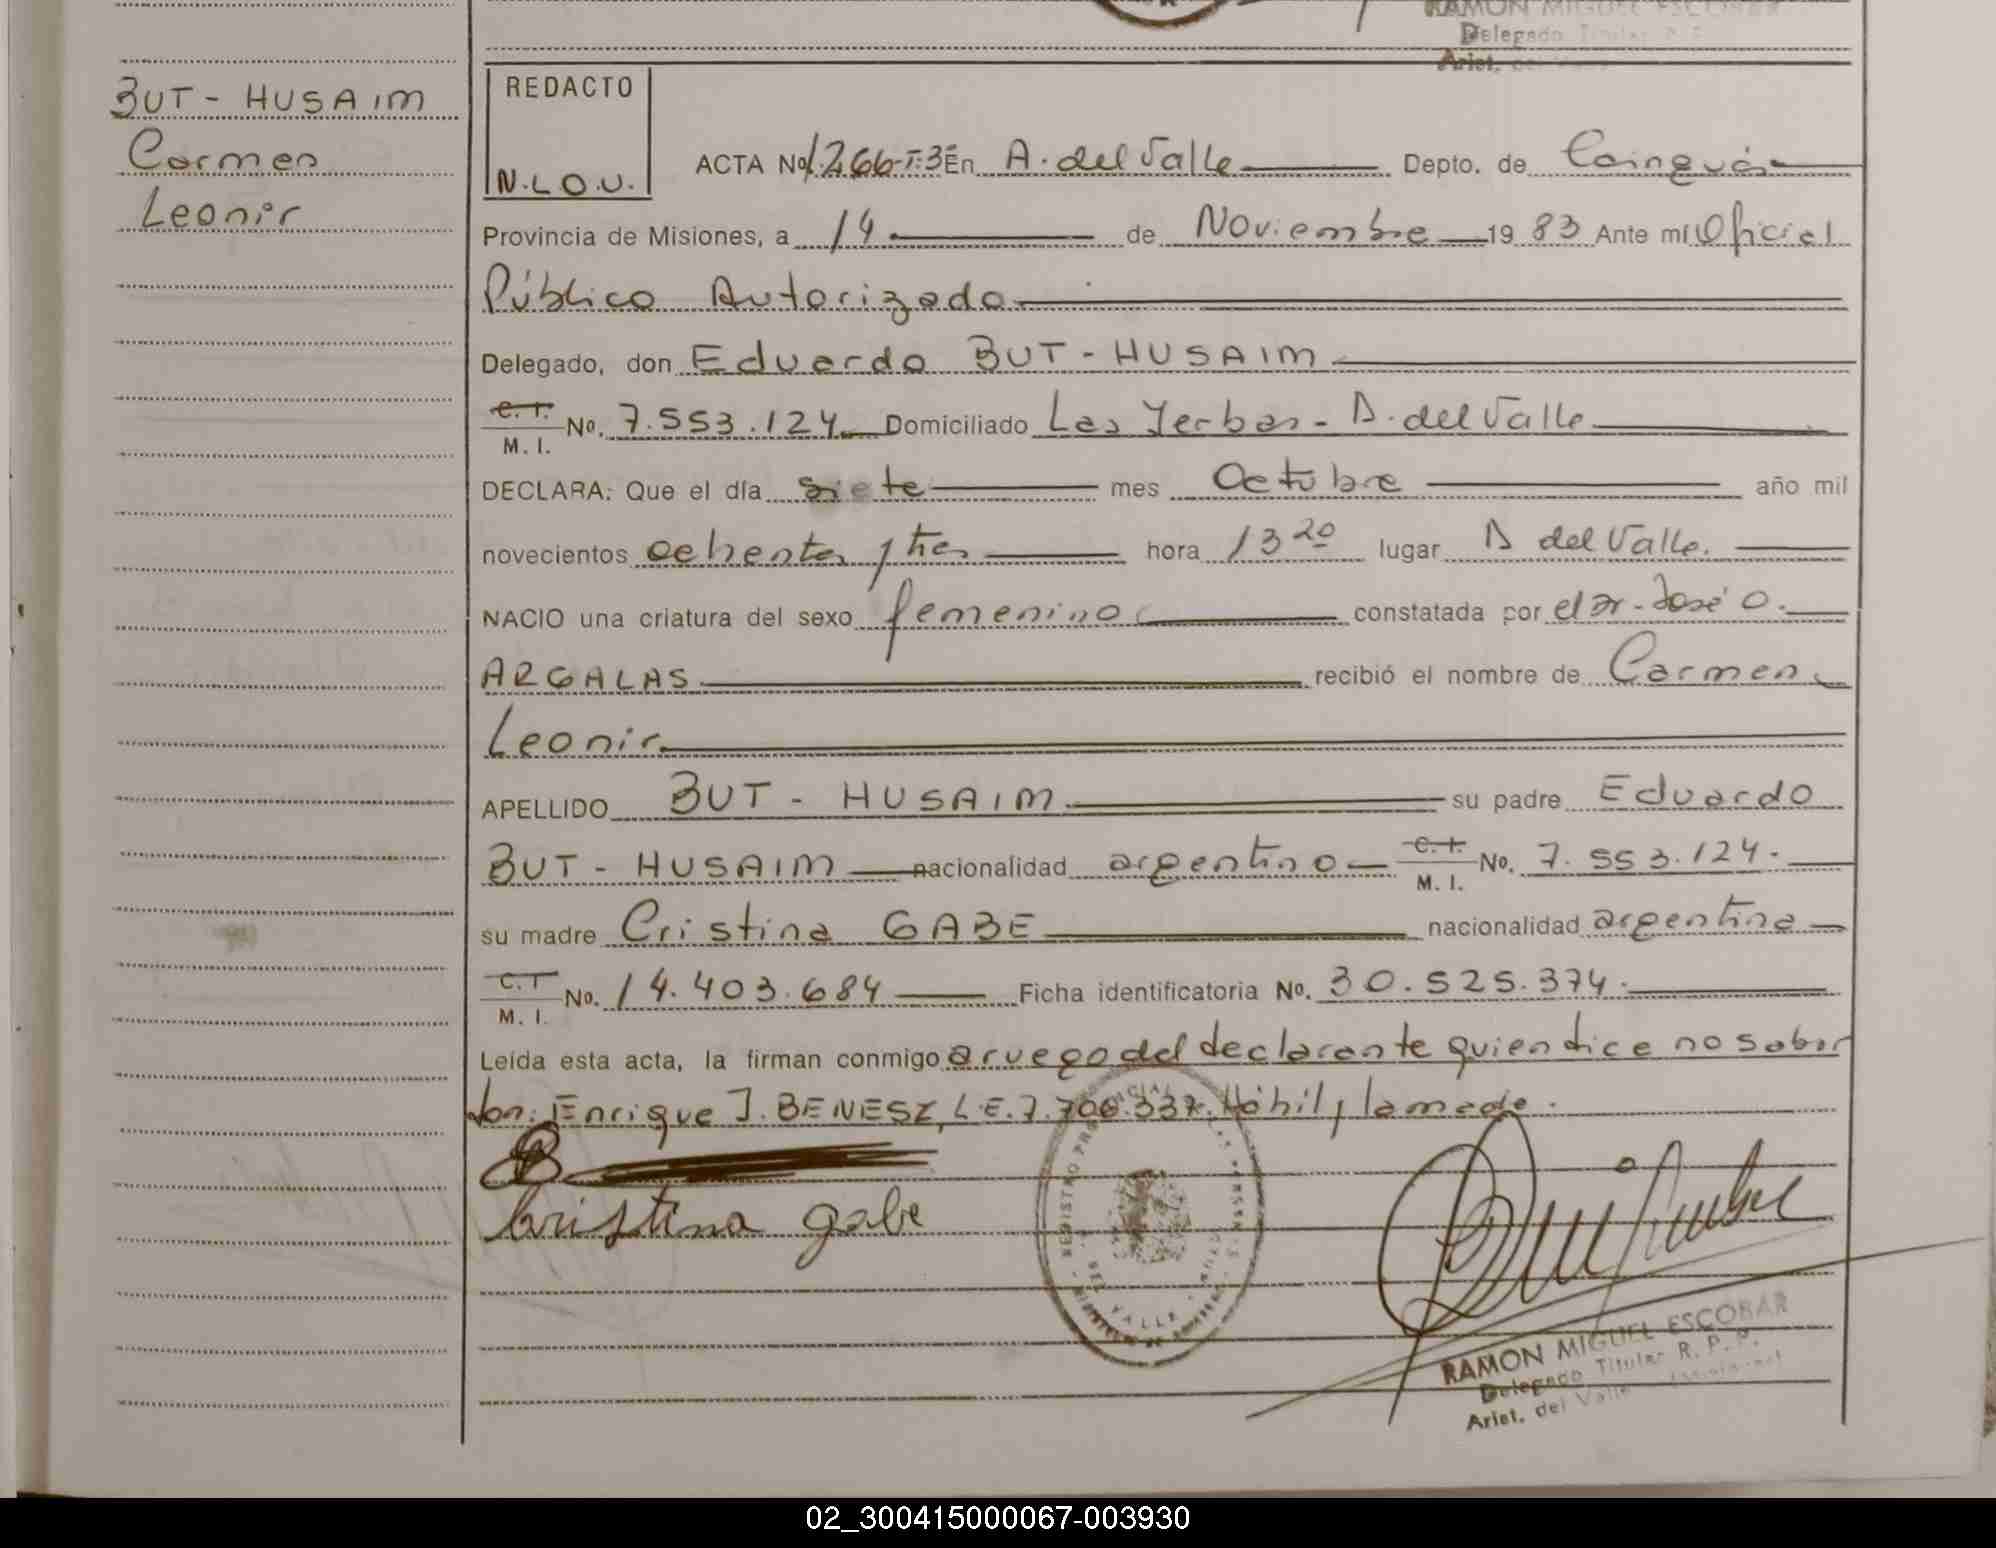 RAMON MIGUEL ESCOBAR
Delegado Titular R. P.
Arist. del Valle
BUT - HUSAIM
Carmen
Leonir
REDACTO
N.L.O.U.
ACTA Nº 1.266-T:3 En A. del Valle Depto. de Cainguás
Provincia de Misiones, a 14 de Noviembre 1983 Ante mí Oficial
Público Autorizado
Delegado, don Eduardo BUT - HUSAIM
C. I. M. I. No. 7.553.124 Domiciliado Las Yerbas - A. del Valle
DECLARA: Que el día siete mes Octubre año mil
novecientos ochenta y tres hora 13 20 lugar A del Valle.
NACIO una criatura del sexo femenino constatada por el Dr. José O.
ARGALAS recibió el nombre de Carmen
Leonir
APELLIDO BUT - HUSAIM su padre Eduardo
BUT - HUSAIM nacionalidad argentino C. I. M. I. No. 7.553.124.
su madre Cristina GABE nacionalidad argentina
C. I M. I. No. 14.403.684 Ficha identificatoria No. 30.525.374.
Leída esta acta, la firman conmigo a ruego del declarante quien dice no saber
don: Enrique J. BENESZ, L.E. 7.706.337. Hábil y la madre.
Cristina gabe
REGISTRO PROVINCIAL DE LAS PERSONAS
DEL VALLE
RAMON MIGUEL ESCOBAR
Delegado Titular R. P. P.
Arist. del Valle
02_300415000067-003930